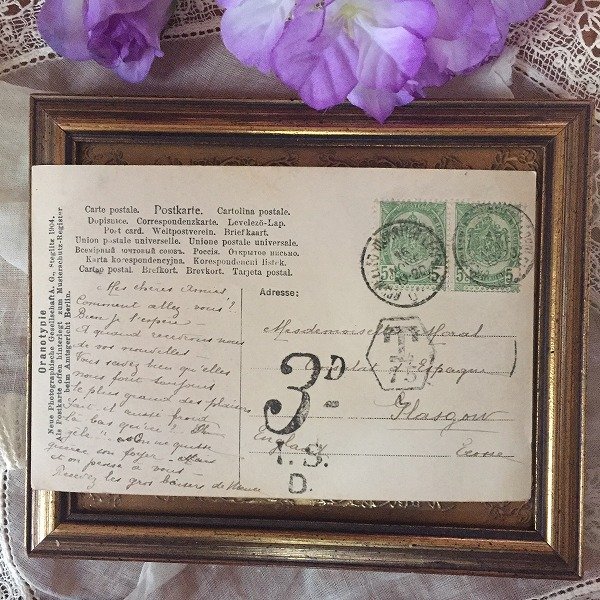 Carte postale. Postkarte. Cartolina postale.
Dopisnice. Correspondenzkarte. Levelező-Lap.
Post card. Weltpostverein. Briefkaart.
Union postale universelle. Unione postale universale.
Всемірный почтовый союзъ. Россія. Открытое письмо.
Karta korespondencyjna. Korespondenčni listek.
Cartaŏ postal. Brefkort. Brevkort. Tarjeta postal.
Oranotypie
Neue Photographische Gesellschaft A. G., Steglitz 1904.
Als Postkarte offen hinterlegt zum Musterschutz-Register
beim Amtsgericht Berlin.
Mes chères Amies
Comment allez vous?
Bien je l'espère
A quand recevrons nous
de vos nouvelles
Vous savez bien qu'elles
nous font toujours
le plus grand des plaisirs
fait il aussi froid
là bas qu'ici?
gèle! on ne quitte
son foyer
et on pense à vous
Recevez les gros baisers de
Adresse:
Mesdemoiselles Moral
Consulat d'Espagne
Glasgow
Ecosse
5 5
5 5
T
3D
I.S.
D.